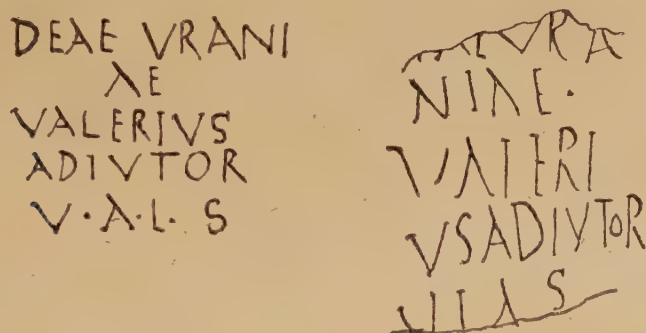 DEAE VRANI
AE
VALERIVS
ADIVTOR
V·A·L·S
VRA
NIAE·
VALERI
VSADIVTOR
VLAS